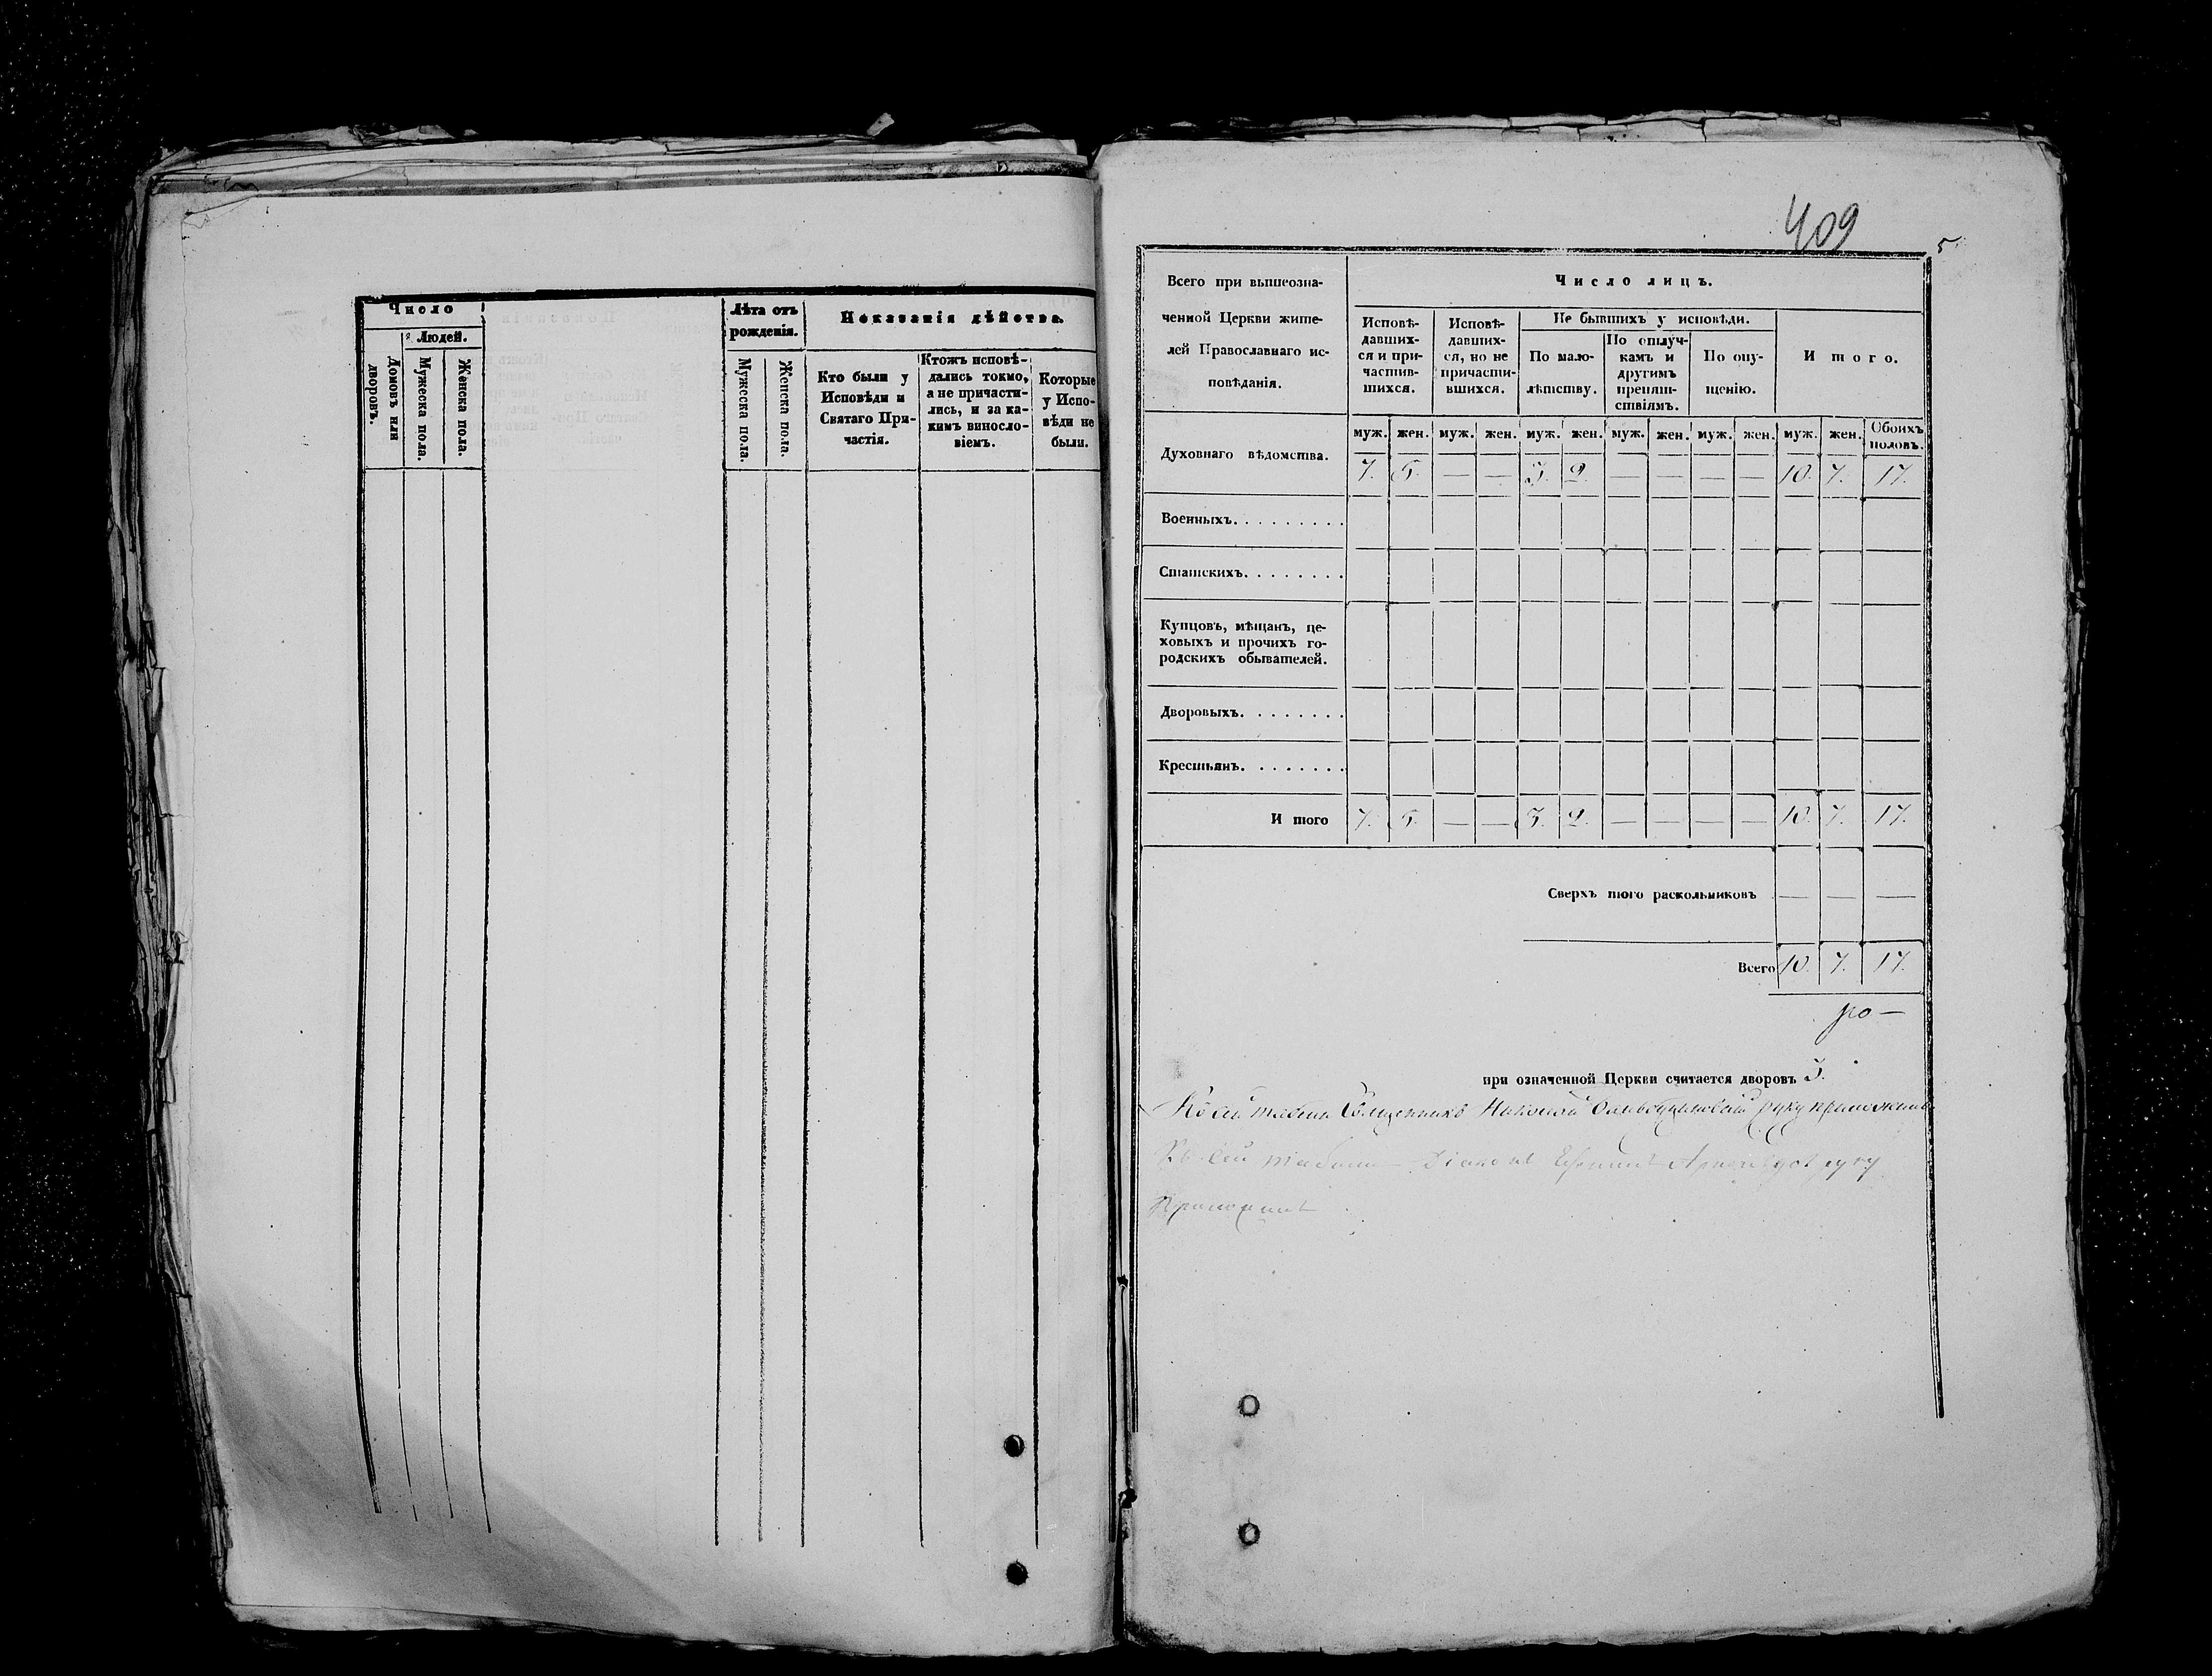 Число
Людей.
Домовъ или дворовъ.
Мужеска пола.
Женска пола.
Лѣта отъ
рожденія.
Мужеска пола.
Женска пола.
Показанія дѣйства.
Кто были у
Исповѣди и
Святаго При-
частія.
Ктожъ исповѣ-
дались токмо,
а не причасти-
лись, и за ка-
кимъ виносло-
віемъ.
Которые
у Испо-
вѣди не
были.
409
5
Всего при вышеозна-
ченной Церкви жите-
лей Православнаго ис-
повѣданія.
Число лицъ.
Исповѣ-
давших-
ся и при-
частив-
шихся.
Исповѣ-
давших-
ся, но не
причасти-
вшихся.
Не бывшихъ у исповѣди.
По мало-
лѣтству.
По отлуч-
камъ и
другимъ
препят-
ствіямъ.
По опу-
щенію.
И того.
муж. жен. муж. жен. муж. жен. муж. жен. муж. жен. муж. жен. Обоихъ половъ.
Духовнаго вѣдомства. 7. 5. — — 3. 2. — — — — 10. 7. 17.
Военныхъ. . . . . . . . .
Статскихъ. . . . . . . .
Купцовъ, мѣщанъ, це-
ховыхъ и прочихъ го-
родскихъ обывателей.
Дворовыхъ. . . . . . . .
Крестьянъ. . . . . . . .
И того 7. 5. — — 3. 2. — — — — 10. 7. 17.
Сверхъ того раскольниковъ — — —
Всего 10. 7. 17.
при означенной Церкви считается дворовъ 3.
Къ сей табели Священникъ Николай руку приложилъ
Къ сей табели Діаконъ руку
приложилъ